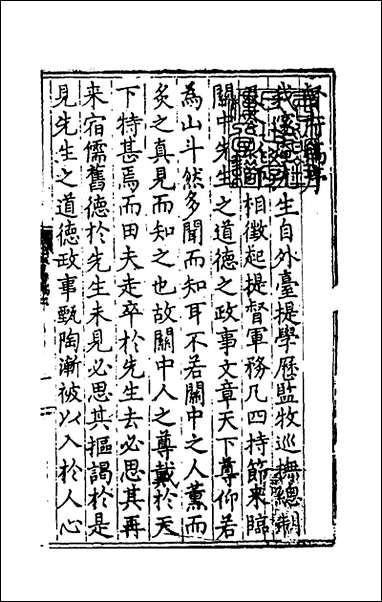 督府稿序
我邃菴楊先生自外臺提學歷監牧巡撫總制
相徵起提督軍務凡四持節來臨
關中先生之道德之政事文章天下尊仰若
為山斗然多聞而知耳不若關中之人薰而
炙之真見而知之也故關中人之尊戴於天
下特甚焉而田夫走卒於先生去必思其再
来宿儒舊德於先生未見必思其摳謁於是
見先生之道德政事甄陶漸被以入於人心